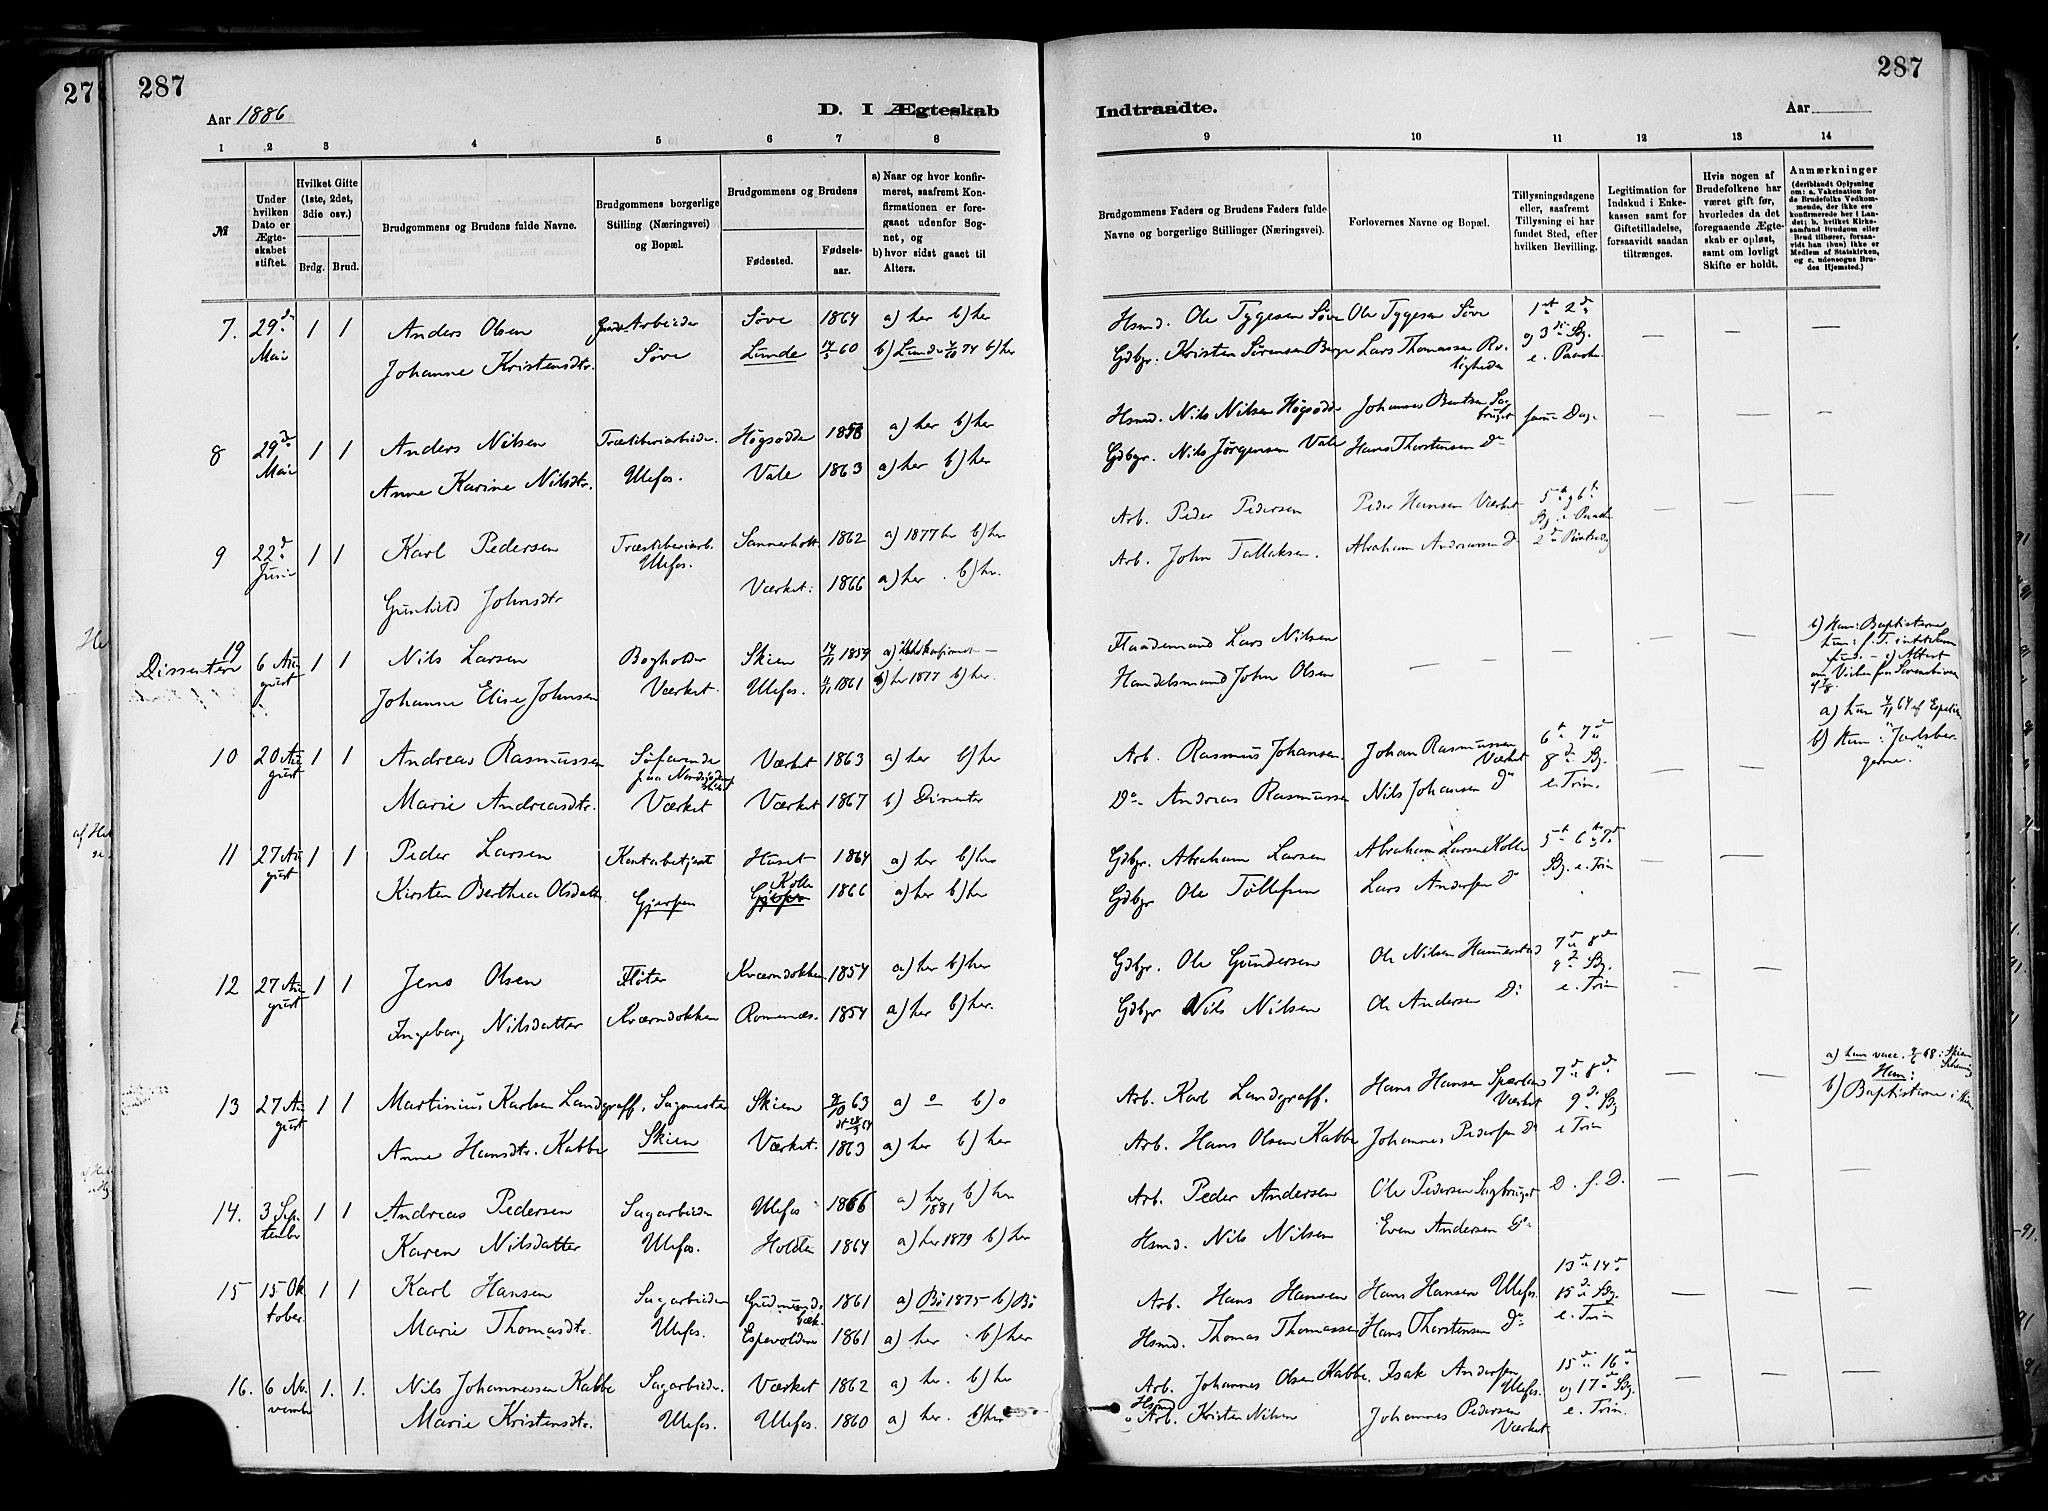 278
287
287
Aar 1886
D. I Ægteskab
Indtraadte.
Aar
1 2 3 4 5 6 7 8
9 10 11 12 13 14
№
Under hvilken Dato er Ægteskabet stiftet.
Hvilket Gifte (1ste, 2det, 3die osv.)
Brdg. Brud.
Brudgommens og Brudens fulde Navne.
Brudgommens borgerlige Stilling (Næringsvei) og Bopæl.
Brudgommens og Brudens
Fødested.
Fødselsaar.
a) Naar og hvor konfirmeret, saafremt Konfirmationen er foregaaet udenfor Sognet, og
b) hvor sidst gaaet til Alters.
Brudgommens Faders og Brudens Faders fulde Navne og borgerlige Stillinger (Næringsvei).
Forlovernes Navne og Bopæl.
Tillysningsdagene eller, saafremt Tillysning ei har fundet Sted, efter hvilken Bevilling.
Legitimation for Indskud i Enkekassen samt for Giftetilladelse, forsaavidt saadan tiltrænges.
Hvis nogen af Brudefolkene har været gift før, hvorledes da det foregaaende Ægteskab er opløst, samt om lovligt Skifte er holdt.
Anmærkninger
(deriblandt Oplysning om: a. Vakcination for de Brudefolks Vedkommende, der ikke ere konfirmerede her i Landet; b. hvilket Kirkesamfund Brudgom eller Brud tilhører, forsaavidt han (hun) ikke er Medlem af Statskirken, og c. udensogns Brudes Hjemsted.)
7. 29de Mai 1 1 Anders Olsen Arbeider Søve 1864 a) her b) her Hsmd. Ole Tygesen Søve Ole Tygesen Søve 1ste 2den
Johanne Kristensdtr. Søve Lunde 60 Lunde 74 b) her Gdbgr. Kristen Sørensen Berge Lars Thomassen og 3die Sg. e. Paaske
8 29de Mai 1 1 Anders Nilsen Træsliberiarbeider Høgsødde 1858 a) her b) her Hsmd. Nils Nilsen Høgsødde Johannes Bentsen Sagbruget samme Dag
Anne Karine Nilsdtr. Ulefos. Vale 1863 a) her b) her Gdbgr. Nils Jørgensen Vale Hans Thorstensen Do
9 22de Juni 1 1 Karl Pedersen Træsliberiarb. Sannerholt 1862 a) 1877 her b) her Arb. Peder Pedersen Peder Hansen Værket 5te og 6te
Gunhild Johnsdtr Ulefos. Værket. 1866 a) her b) her. Arb. John Tallaksen. Abraham Andreassen Do
19 Dissentere 6 August 1 1 Nils Larsen Bogholder Skien 1859 Flaadermand Lars Nilsen b) Ham: Baptisterne
Johanne Elise Johnsen Værket. Ulefos. 1861 her 1877 b) her. Handelsmand John Olsen
10 20 August 1 1 Andreas Rasmussen Søfarende Værket 1863 a) her b) her Arb. Rasmus Johansen Johan Rasmussen Værket 6te 7de 8de Sg. e. Trin.
Marie Andreasdtr. Værket Værket 1867 b) Dissenter Do Andreas Rasmussen Nils Johansen Do
11 27 August 1 1 Peder Larsen Kontorbetjent Huset 1864 a) her b) her Gdbgr. Abraham Larsen Abraham Larsen Kolle 5te 6te 7de Sg. e. Trin
Kirsten Berthea Olsdatter Gjerpen Kolle 1866 a) her b) her Gdbgr Ole Tollefsen Lars Andersen Do
12 27 August 1 1 Jens Olsen Fløter Kværndokken 1854 a) her b) her Gdbgr. Ole Gundersen Ole Nilsen Hammerstad 7de 8de 9de Sg. e. Trin
Ingeborg Nilsdatter Kværndokken Romenæs. 1854 a) her b) her. Gdbgr Nils Nilsen Ole Andersen Do
13 27 August 1 1 Martinius Karlsen Landgraff. Sagmester Skien 63 a) o b) o Arb. Karl Landgraff. Hans Hansen Værket 7de 8de 9de Sg e Trin
Anne Hansdtr. Kabbe Skien Værket. 1863 a) her b) her Arb. Hans Olsen Kabbe Johannes Pedersen Do b) Baptisterne i Skien
14. 3 September 1 1 Andreas Pedersen Sagarbeider Ulefos 1866 a) her 1881 b) her Arb. Peder Andersen Ole Pedersen Sagbruget D. s. D.
Karen Nilsdatter Ulefos. Holden 1864 a) her 1879 b) her Hsmd. Nils Nilsen Even Andersen Do
15 15 Oktober. 1 1 Karl Hansen Sagarbeider Gudmundsbæk. 1861 a) Bø 1875 b) Bø Arb. Hans Hansen Hans Hansen Ulefos. 13de 14de 15de Sg. e. Trin
Marie Thomasdtr. Ulefos. Espevolden 1861 a) her b) her Hsmd. Thomas Thomassen Hans Thorstensen Do
16. 6 November 1. 1. Nils Johannessen Kabbe Sagarbeider. Værket 1862 a) her. b) her Arb. Johannes Olsen Kabbe. Isak Andersen Ulefos. 15de 16de og 17de Sg. e. Trin.
Marie Kristensdtr. Ulefos. Ulefos. 1860 a) her. b) her Hsmd Arb. Kristen Nilsen Johannes Pedersen Værket